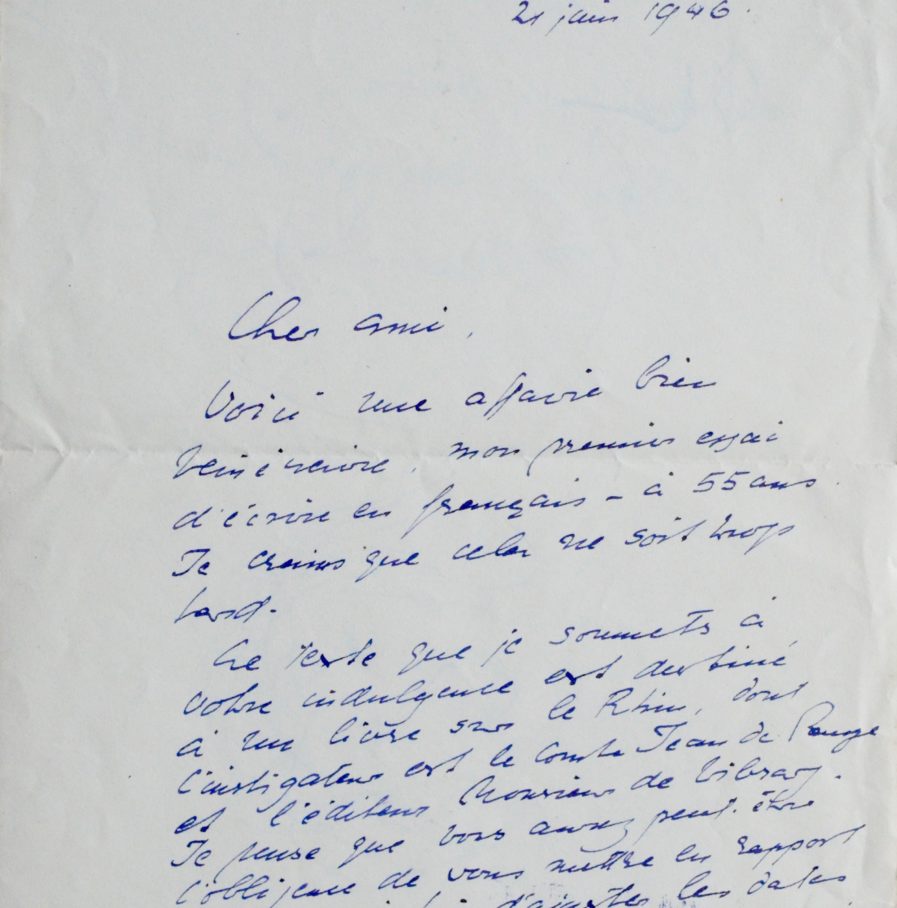 21 juin 1946.
Cher ami,
Voici une affaire bien
téméraire. mon premier essai
d'écrire en français - à 55 ans.
Je crains que cela ne soit trop
tard.
Le texte que je soumets à
votre indulgence est destiné
à un livre sur le Rhin, dont
l'instigateur est le comte Jean de Pange
et l'éditeur Monsieur de Vibray.
Je pense que vous aurez peut-être
l'obligeance de vous mettre en rapport
d'ajouter les dates